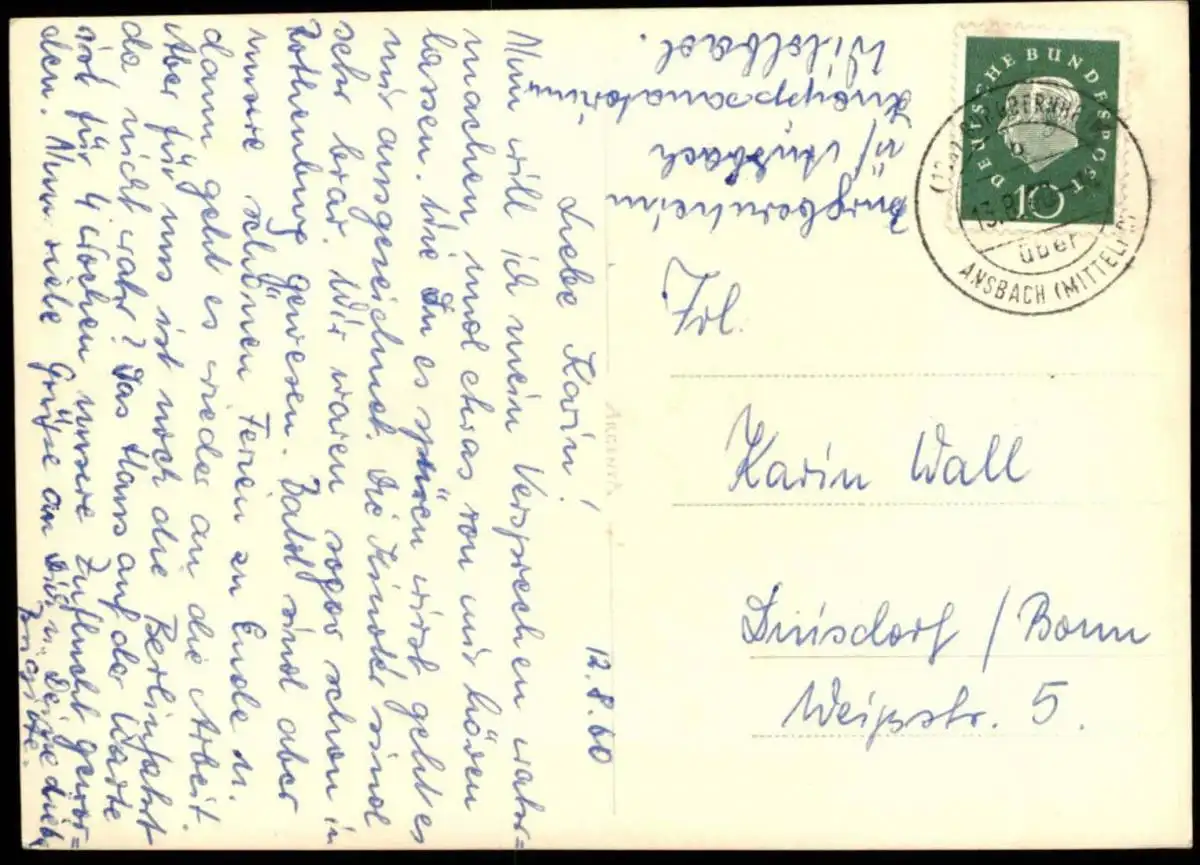 12.8.60
Liebe Karin!
Nun will ich mein Versprechen wahr=
machen und etwas von mir hören
lassen. Wie Du es spüren wirst geht es
mir ausgezeichnet. Die Kinder sind
sehr brav. Wir waren sogar schon in
Rothenburg gewesen. Bald sind aber
unsere schönen Ferien zu Ende u.
dann geht es wieder an die Arbeit.
Aber für uns ist noch die Berlinfahrt
da, nicht wahr? Das Haus auf der Warte
ist für 4 Wochen unsere Zuflucht gewor=
den. Nun viele Grüße an Dich u. Deine Lieben
Brigitte.
Burgbernheim
ü/ Ansbach
Kneippsanatorium
Wildbad.
DEUTSCHE BUNDESPOST
10
über
ANSBACH (MITTELFR)
Frl.
Karin Wall
Duisdorf / Bonn
Weißstr. 5.
ARGENTA